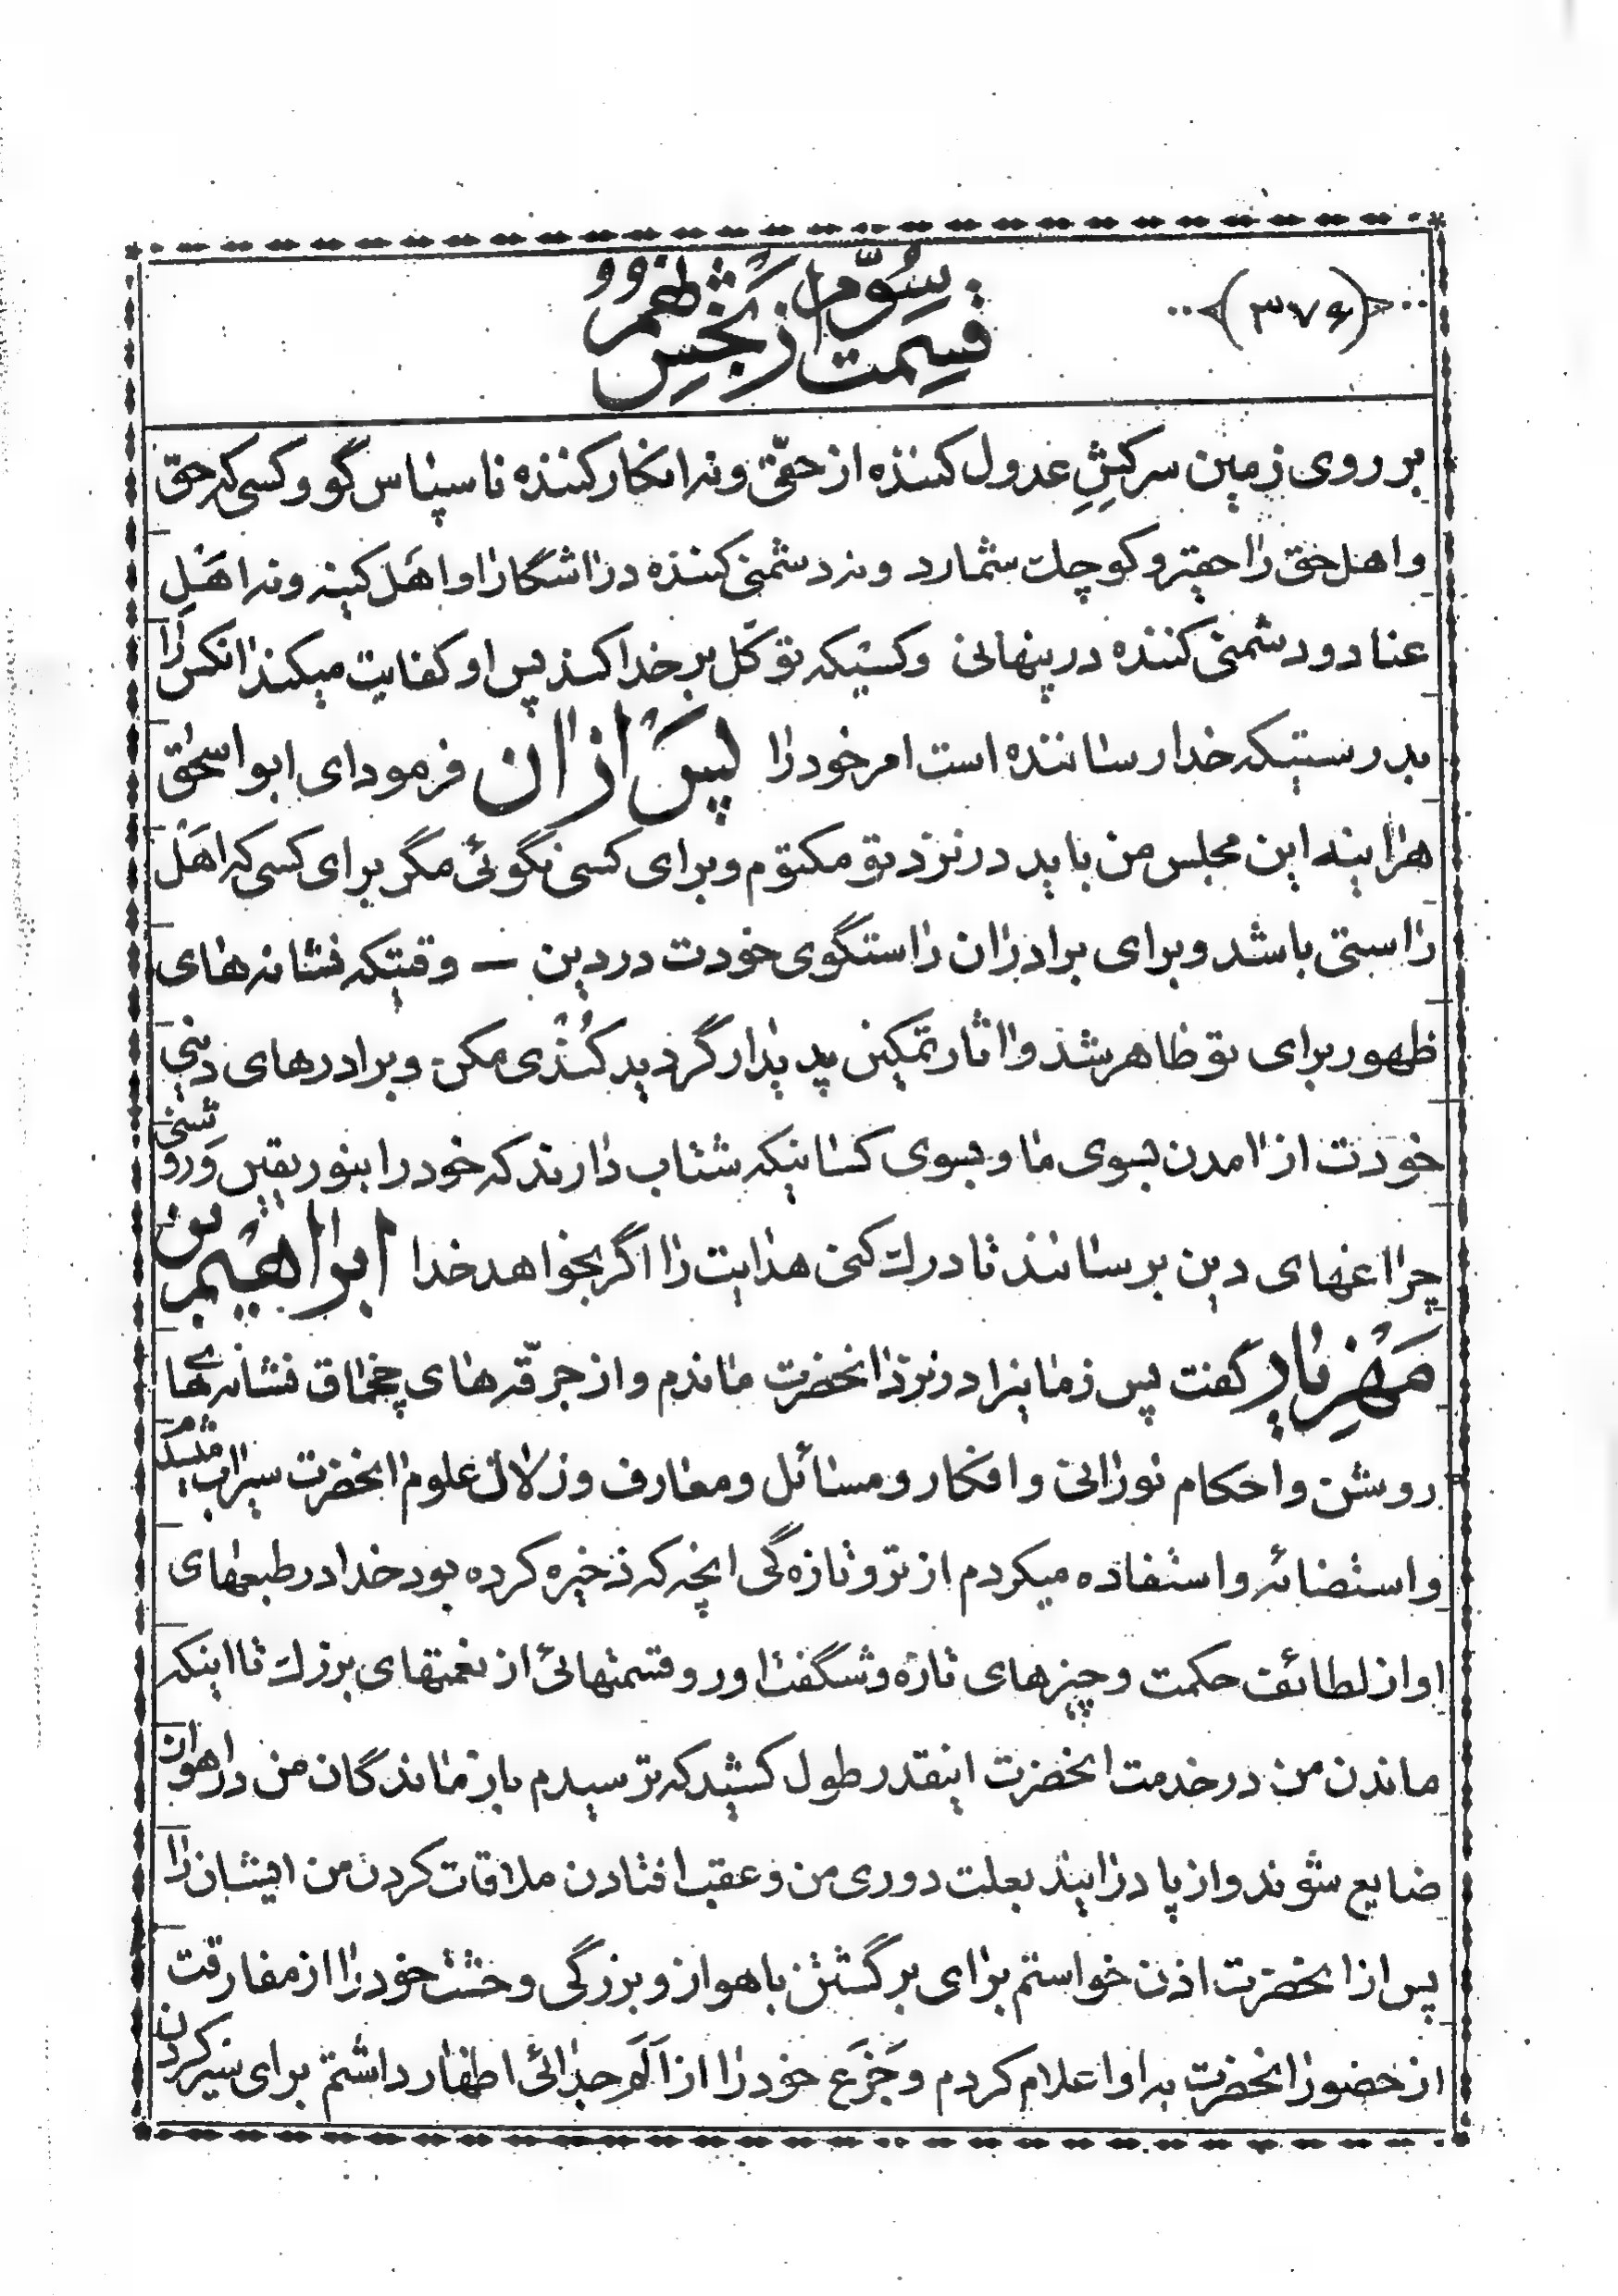 ﴿۳۷۶﴾
قسمت سوّم از بخش ظهور
بر روی زمین سرکشِ عدول کننده از حقّ و نه انکار کننده ناسپاس گو و کسی که حقّ
و اهل حق را حقیر و کوچک شمارد و نه دشمنی کننده در اشکارا و اَهل کینه و نه اَهَلِ
عناد و دشمنی کننده در پنهانی وکسیکه توکّل بر خدا کند پس او کفایت میکند انکس را
بدرستیکه خدا رساننده است امر خود را پس از ان فرمود ای ابو اسحٰق
هراینه این مجلس من باید در نزد تو مکتوم و برای کسی نگوئی مگر برای کسی که اهل
راستی باشد و برای برادران راستگوی خودت در دین — وقتیکه نشانه های
ظهور برای تو ظاهر شد و اثار تمکین پدیدار گردید کُندی مکن و برادرهای دینی
خودت از امدن بسوی ما و بسوی کسانیکه شتاب دارند که خود را بنور یقین وَ روشنی
چراغهای دین برسانند تا درک کنی هدایت را اگر بخواهد خدا ابراهیم بن
مَهْزِیار گفت پس زمانیرا در نزد انحضرت ماندم و از جرقّه های چخماق نشانه های
روشن و احکام نورانی و افکار و مسائل و معارف و زلال علوم انحضرت سیراب میشدم
و استضائه و استفاده میکردم از تر و تازه گی انچه که ذخیره کرده بود خدا در طبعهای
او از لطائف حکمت و چیزهای تازه و شگفت اور و قسمتهائی از نعمتهای بزرک تا اینکه
ماندن من در خدمت انحضرت اینقدر طول کشید که ترسیدم بازماندگان من در اهواز
ضایع شوند و از پا درایند بعلت دوری من و عقب افتادن ملاقات کردن من ایشان را
پس از انحضرت اذن خواستم برای برگشتن باهواز و بزرگی وحشت خود را از مفارقت
از حضور انحضرت به او اعلام کردم و جَزَع خود را از اَلَم جدائی اظهار داشتم برای سیر کردن